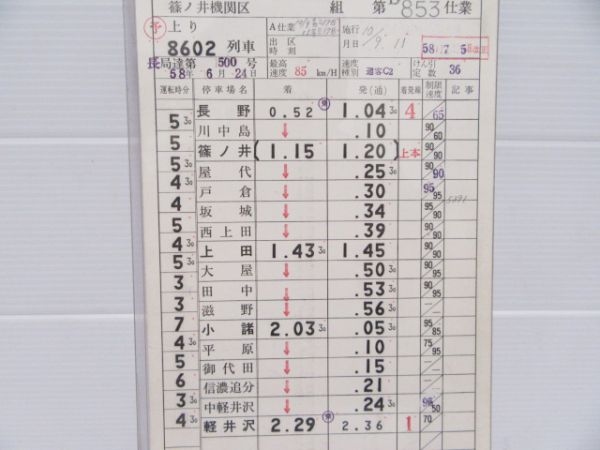 篠ノ井機関区 組 第 853 仕業
予 上り A仕業 施行 10/
8602 列車 出区時刻 月日 9.11 58.7.5
長局達第 500 号 最高速度 85 km/H 速度種別 通客C2 けん引定数 36
58年 6月 24日
運転時分 停車場名 着 発(通) 着発線 制限速度 記事
長野 0.52 1.04 30 4 65
5 30
川中島 ↓ .10 90 60
5
篠ノ井 (1.15 1.20) 上本 90 60
5 30
屋代 ↓ .25 30 90 90
4 30
戸倉 ↓ .30 95 95
4
坂城 ↓ .34 95 90
5
西上田 ↓ .39 90 90
4 30
上田 1.43 30 1.45 90 90
5 30
大屋 ↓ .50 30
3
田中 ↓ .53 30
3
滋野 ↓ .56 30
7
小諸 2.03 30 .05 30 95 85
4 30
平原 ↓ .10 75 95
5
御代田 ↓ .15
6
信濃追分 ↓ .21
3 30
中軽井沢 ↓ .24 30 95 50
4 30
軽井沢 2.29 2.36 1 70